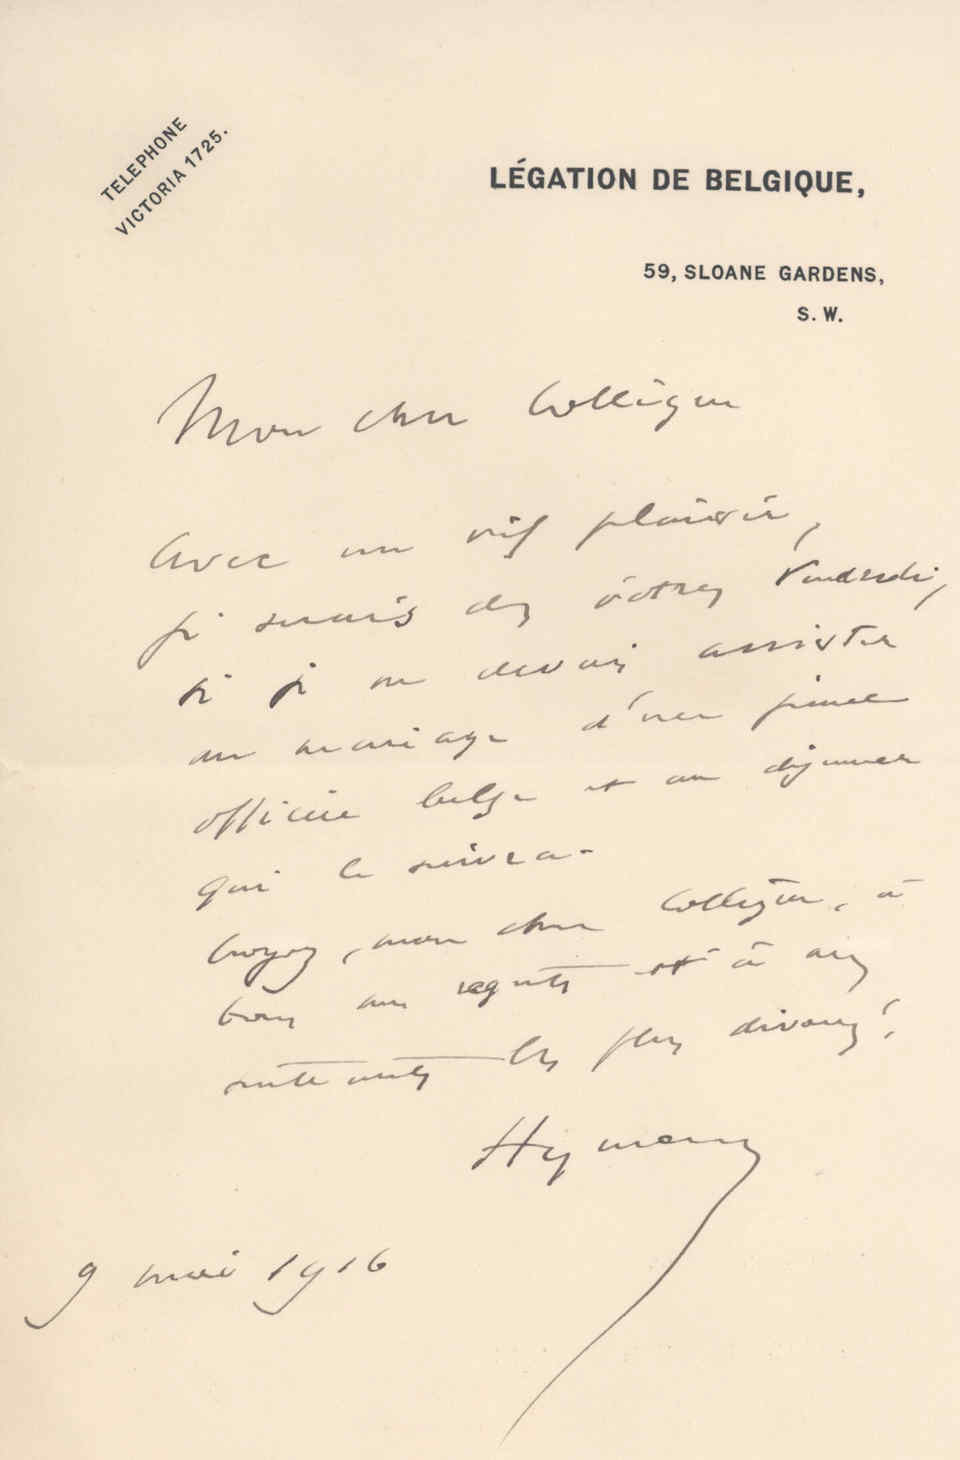 TELEPHONE
VICTORIA 1725.
LÉGATION DE BELGIQUE,
59, SLOANE GARDENS,
S. W.
Mon cher Collègue
Avec un vif plaisir,
je serais des vôtres Vendredi,
si je ne devais assister
au mariage d'un jeune
officier belge et au déjeuner
qui le suivra.
Croyez, mon cher Collègue, à
tous mes regrets et à mes
sentiments les plus dévoués.
Hymans
9 mai 1916